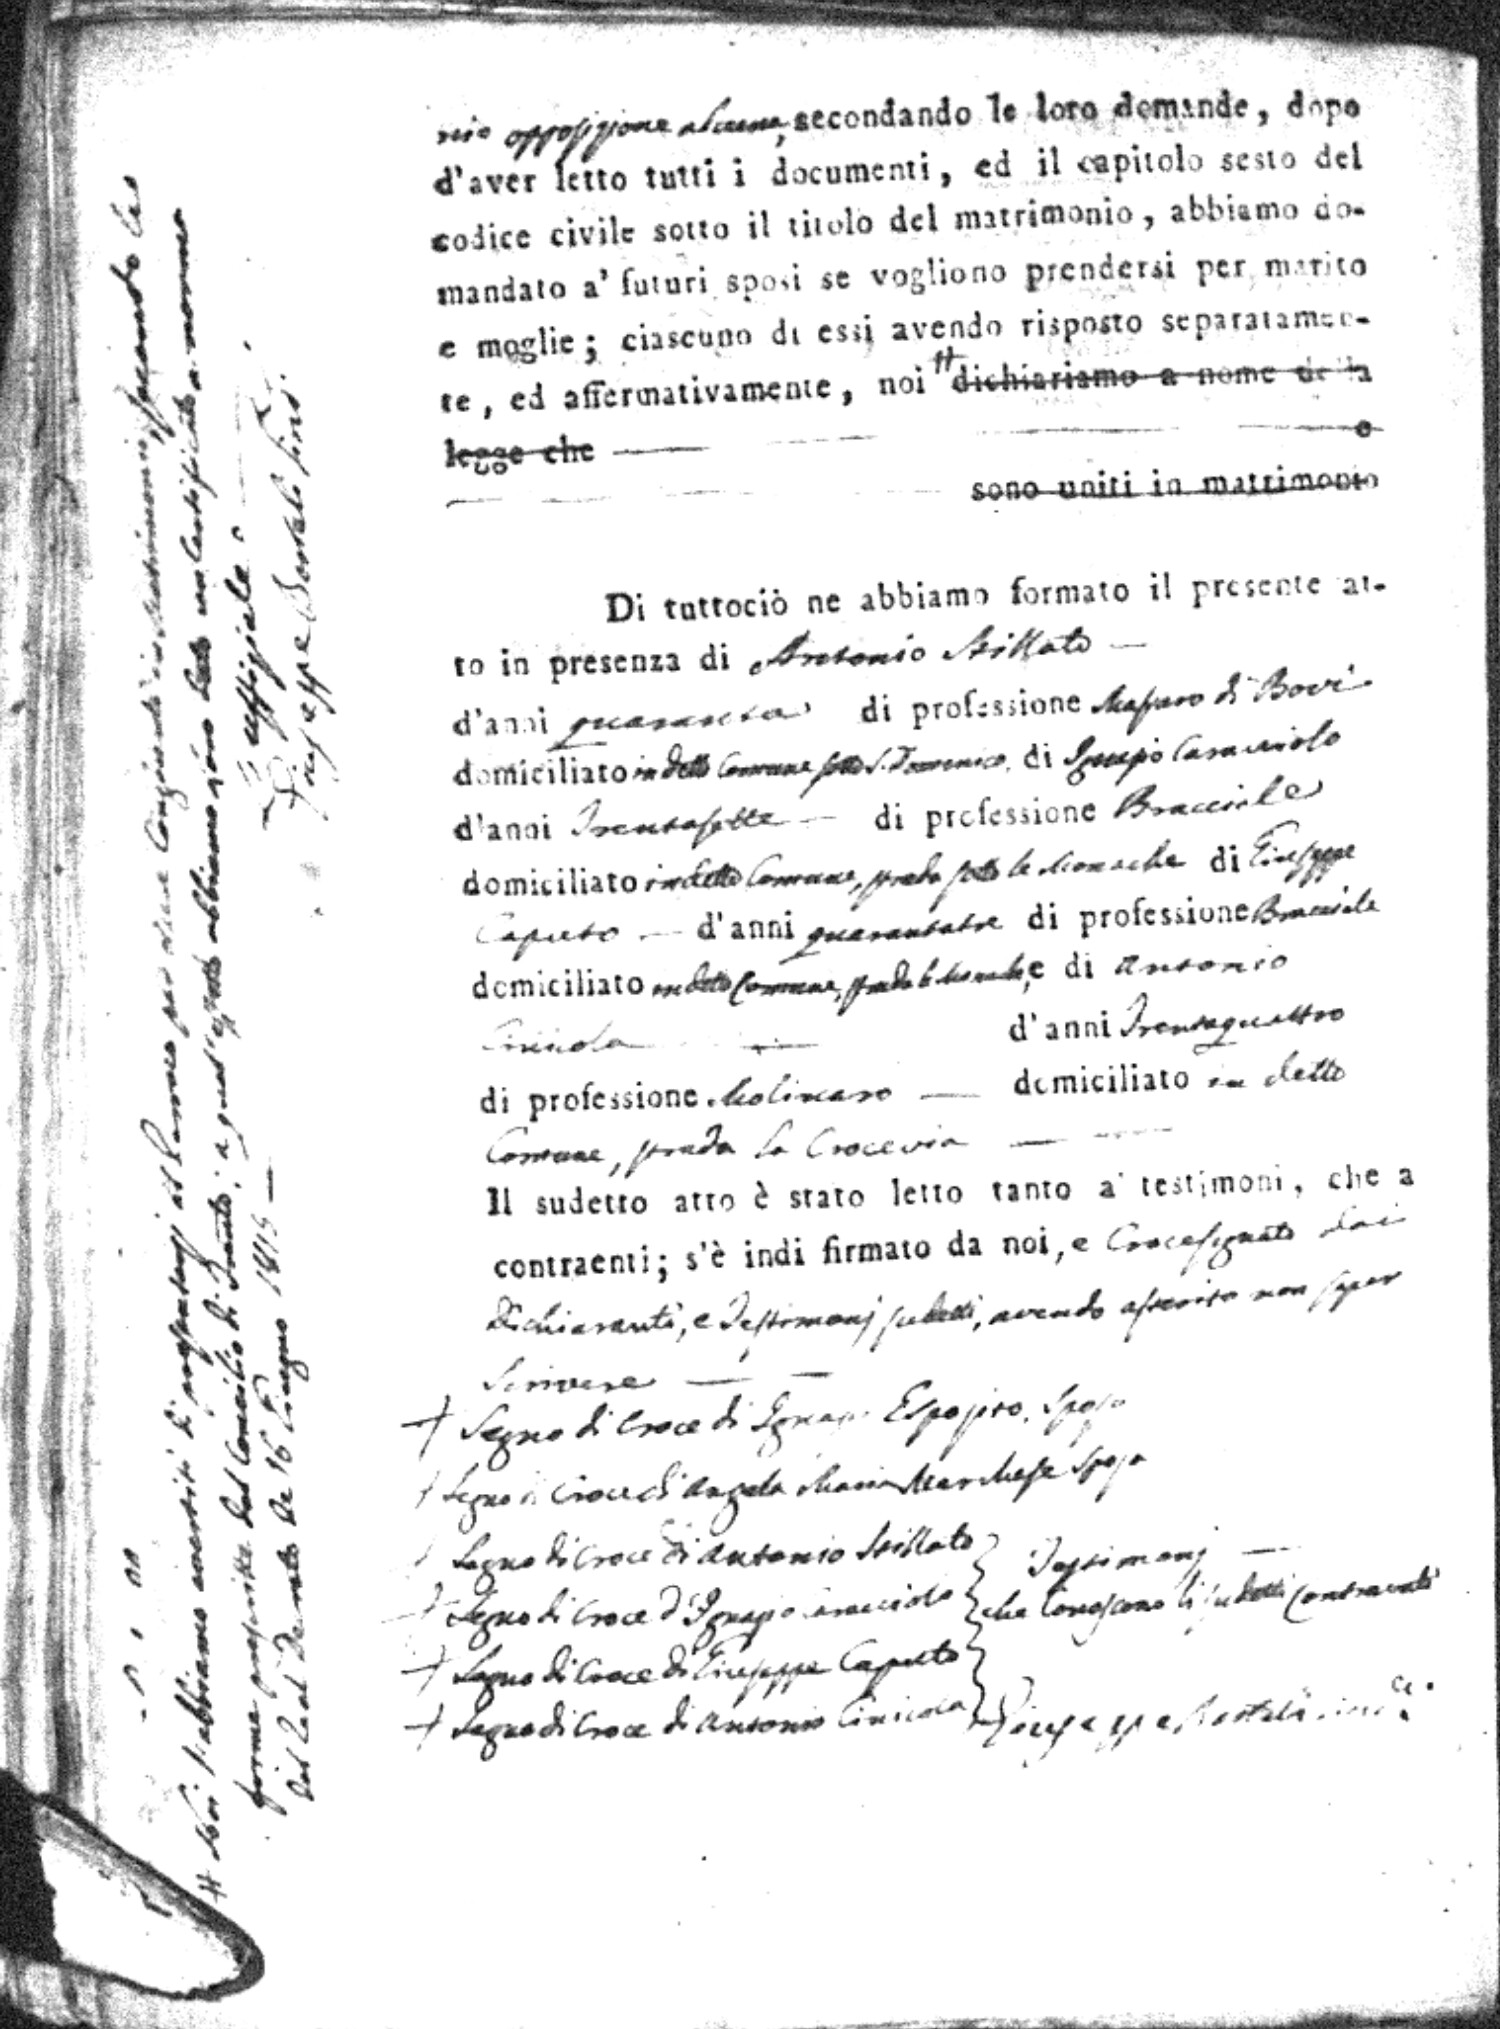 nio opposizione alcuna, secondando le loro demande, dopo
d'aver letto tutti i documenti, ed il capitolo sesto del
codice civile sotto il titolo del matrimonio, abbiamo do-
mandato a' futuri sposi se vogliono prendersi per marito
e moglie; ciascuno di essi avendo risposto separatamen-
te, ed affermativamente, noi # dichiariamo a nome della
legge che e
sono uniti in matrimonio
Di tuttociò ne abbiamo formato il presente at-
to in presenza di Antonio Stillato
d'anni quaranta di professione Massaro di Bovi
domiciliato in detto Comune sotto S. Domenico, di Ignazio Caracciolo
d'anni Trentasette di professione Bracciale
domiciliato in detto Comune, strada sotto le Monache di Giuseppe
Caputo d'anni quarantatre di professione Bracciale
domiciliato in detto Comune, strada le Monache, e di Antonio
Cinicola d'anni Trentaquattro
di professione Molinaro domiciliato in detto
Comune, strada la Crocevia
Il sudetto atto è stato letto tanto a' testimoni, che a
contraenti; s'è indi firmato da noi, e Crocesignato dai
Dichiaranti, e Testimonj sudetti, avendo asserito non saper
Scrivere
+ Segno di Croce di Ignazio Esposito, Sposo
+ Segno di Croce di Angela Maria Marchese Sposa
+ Segno di Croce di Antonio Stillato
+ Segno di Croce d'Ignazio Caracciolo
+ Segno di Croce di Giuseppe Caputo
+ Segno di Croce di Antonio Cinicola
Testimonj
che conoscono li sudetti Contraenti
Giuseppe
# Noi l'abbiamo avertiti di presentarsi al Parroco per essere Congiunti in Matrimonio, secondo le
forme prescritte dal Concilio di Trento; a quest'effetto abbiamo loro dato un Certificato a norma
dal Real Decreto de 16 Giugno 1815
L'uffiziale
Giuseppe